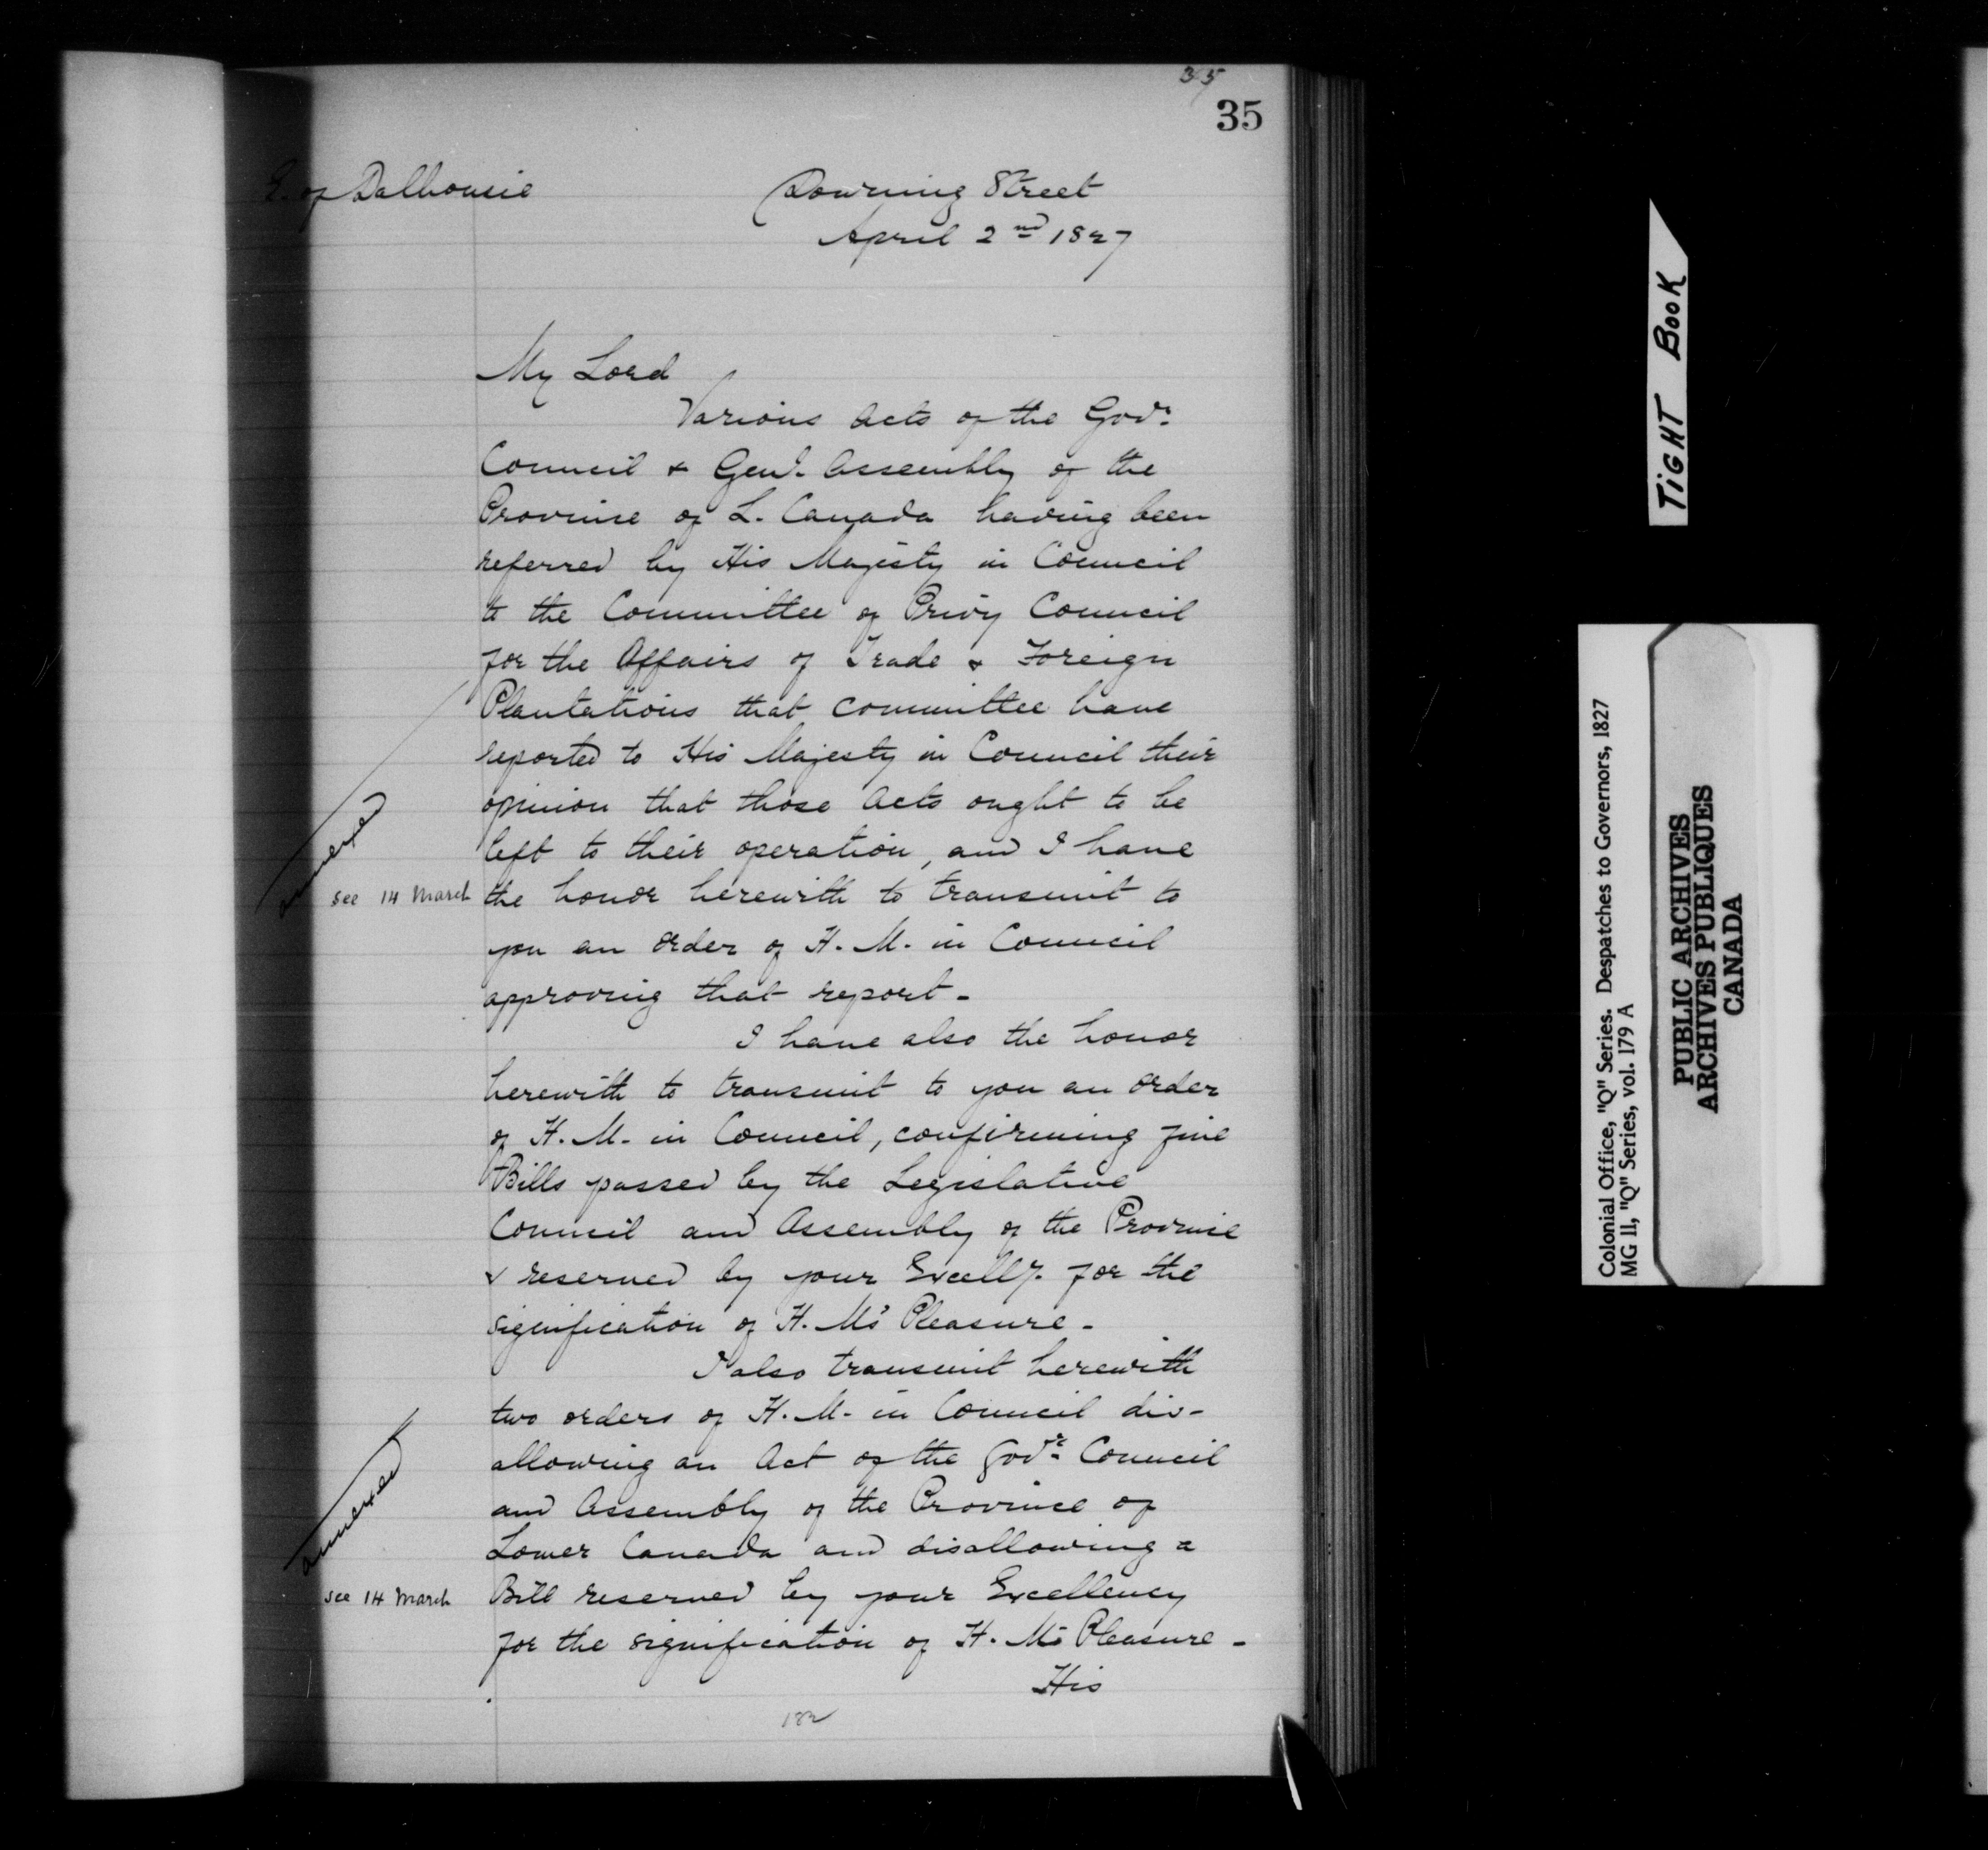 35
35
E. of Dalhousie
Downing Street
April 2nd 1827
My Lord
Various Acts of the Govr.
Council & Genl. Assembly of the
Province of L. Canada having been
referred by His Majesty in Council
to the Committee of Privy Council
for the Affairs of Trade & Foreign
Plantations that Committee have
reported to His Majesty in Council their
opinion that those Acts ought to be
left to their operation, and I have
annexed
see 14 March
the honor herewith to transmit to
you an order of H. M. in Council
approving that report -
I have also the honor
herewith to transmit to you an order
of H. M. in Council, confirming five
Bills passed by the Legislative
Council and Assembly of the Province
& reserved by your Excelly. for the
signification of H. Ms Pleasure -
I also transmit herewith
two orders of H. M. in Council dis-
allowing an Act of the Govr. Council
and Assembly of the Province of
Lower Canada and disallowing a
annexed
see 14 March
Bill reserved by your Excellency
for the signification of H. Ms Pleasure -
His
182
TIGHT BOOK
Colonial Office, "Q" Series. Despatches to Governors, 1827
MG 11, "Q" Series, vol. 179 A
PUBLIC ARCHIVES
ARCHIVES PUBLIQUES
CANADA